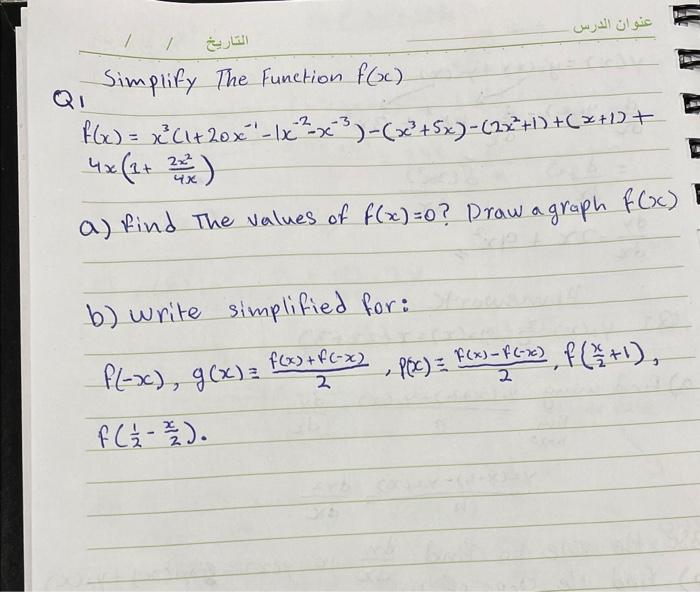 عنوان الدرس
التاريخ / /
Simplify The Function f(x)
Q1
f(x) = x³(1+20x⁻¹-1x⁻²-x⁻³)-(x³+5x)-(2x²+1)+(x+1)+
4x(1+ 2x²/4x)
a) find The values of f(x)=0? Draw a graph f(x)
b) write simplified for:
f(-x), g(x)≡ f(x)+f(-x)/2, p(x)≡ f(x)-f(-x)/2, f(x/2+1),
f(1/2-x/2).